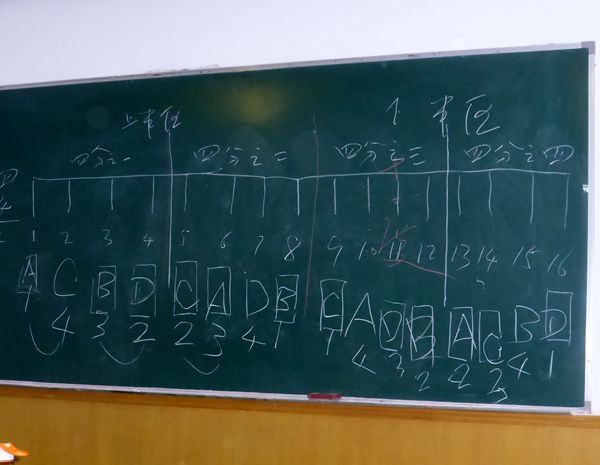 上半区 下半区
四分之一 四分之二 四分之三 四分之四
1 2 3 4 5 6 7 8 9 10 11 12 13 14 15 16
A C B D C A D B C A D B A C B D
1 4 3 2 2 3 4 1 1 4 3 2 2 3 4 1